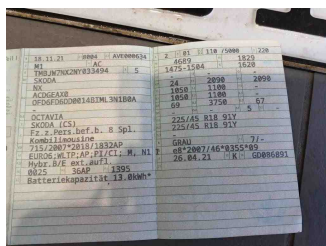 18.11.21 8004 AVE000634
M1 AC
TMBJW7NX2NY033494 5
SKODA
NX
ACDGEAX0
OFD6FD6DD0148IML3N1B0A
-
OCTAVIA
SKODA (CS)
Fz.z.Pers.bef.b. 8 Spl.
Kombilimousine
715/2007*2018/1832AP
EURO6;WLTP;AP;PI/CI; M, N1 I
Hybr.B/E ext.aufl.
0025 36AP 1395
Batteriekapazität 13.0kWh*
2 01 110 /5000 220
4689 1829
1475-1504 1620
- -
24 2090 2090
1050 1100 -
1050 1100 -
69 3750 67
- 5 -
225/45 R18 91Y
225/45 R18 91Y
-
GRAU 7/-
e8*2007/46*0355*09
26.04.21 K GD086891